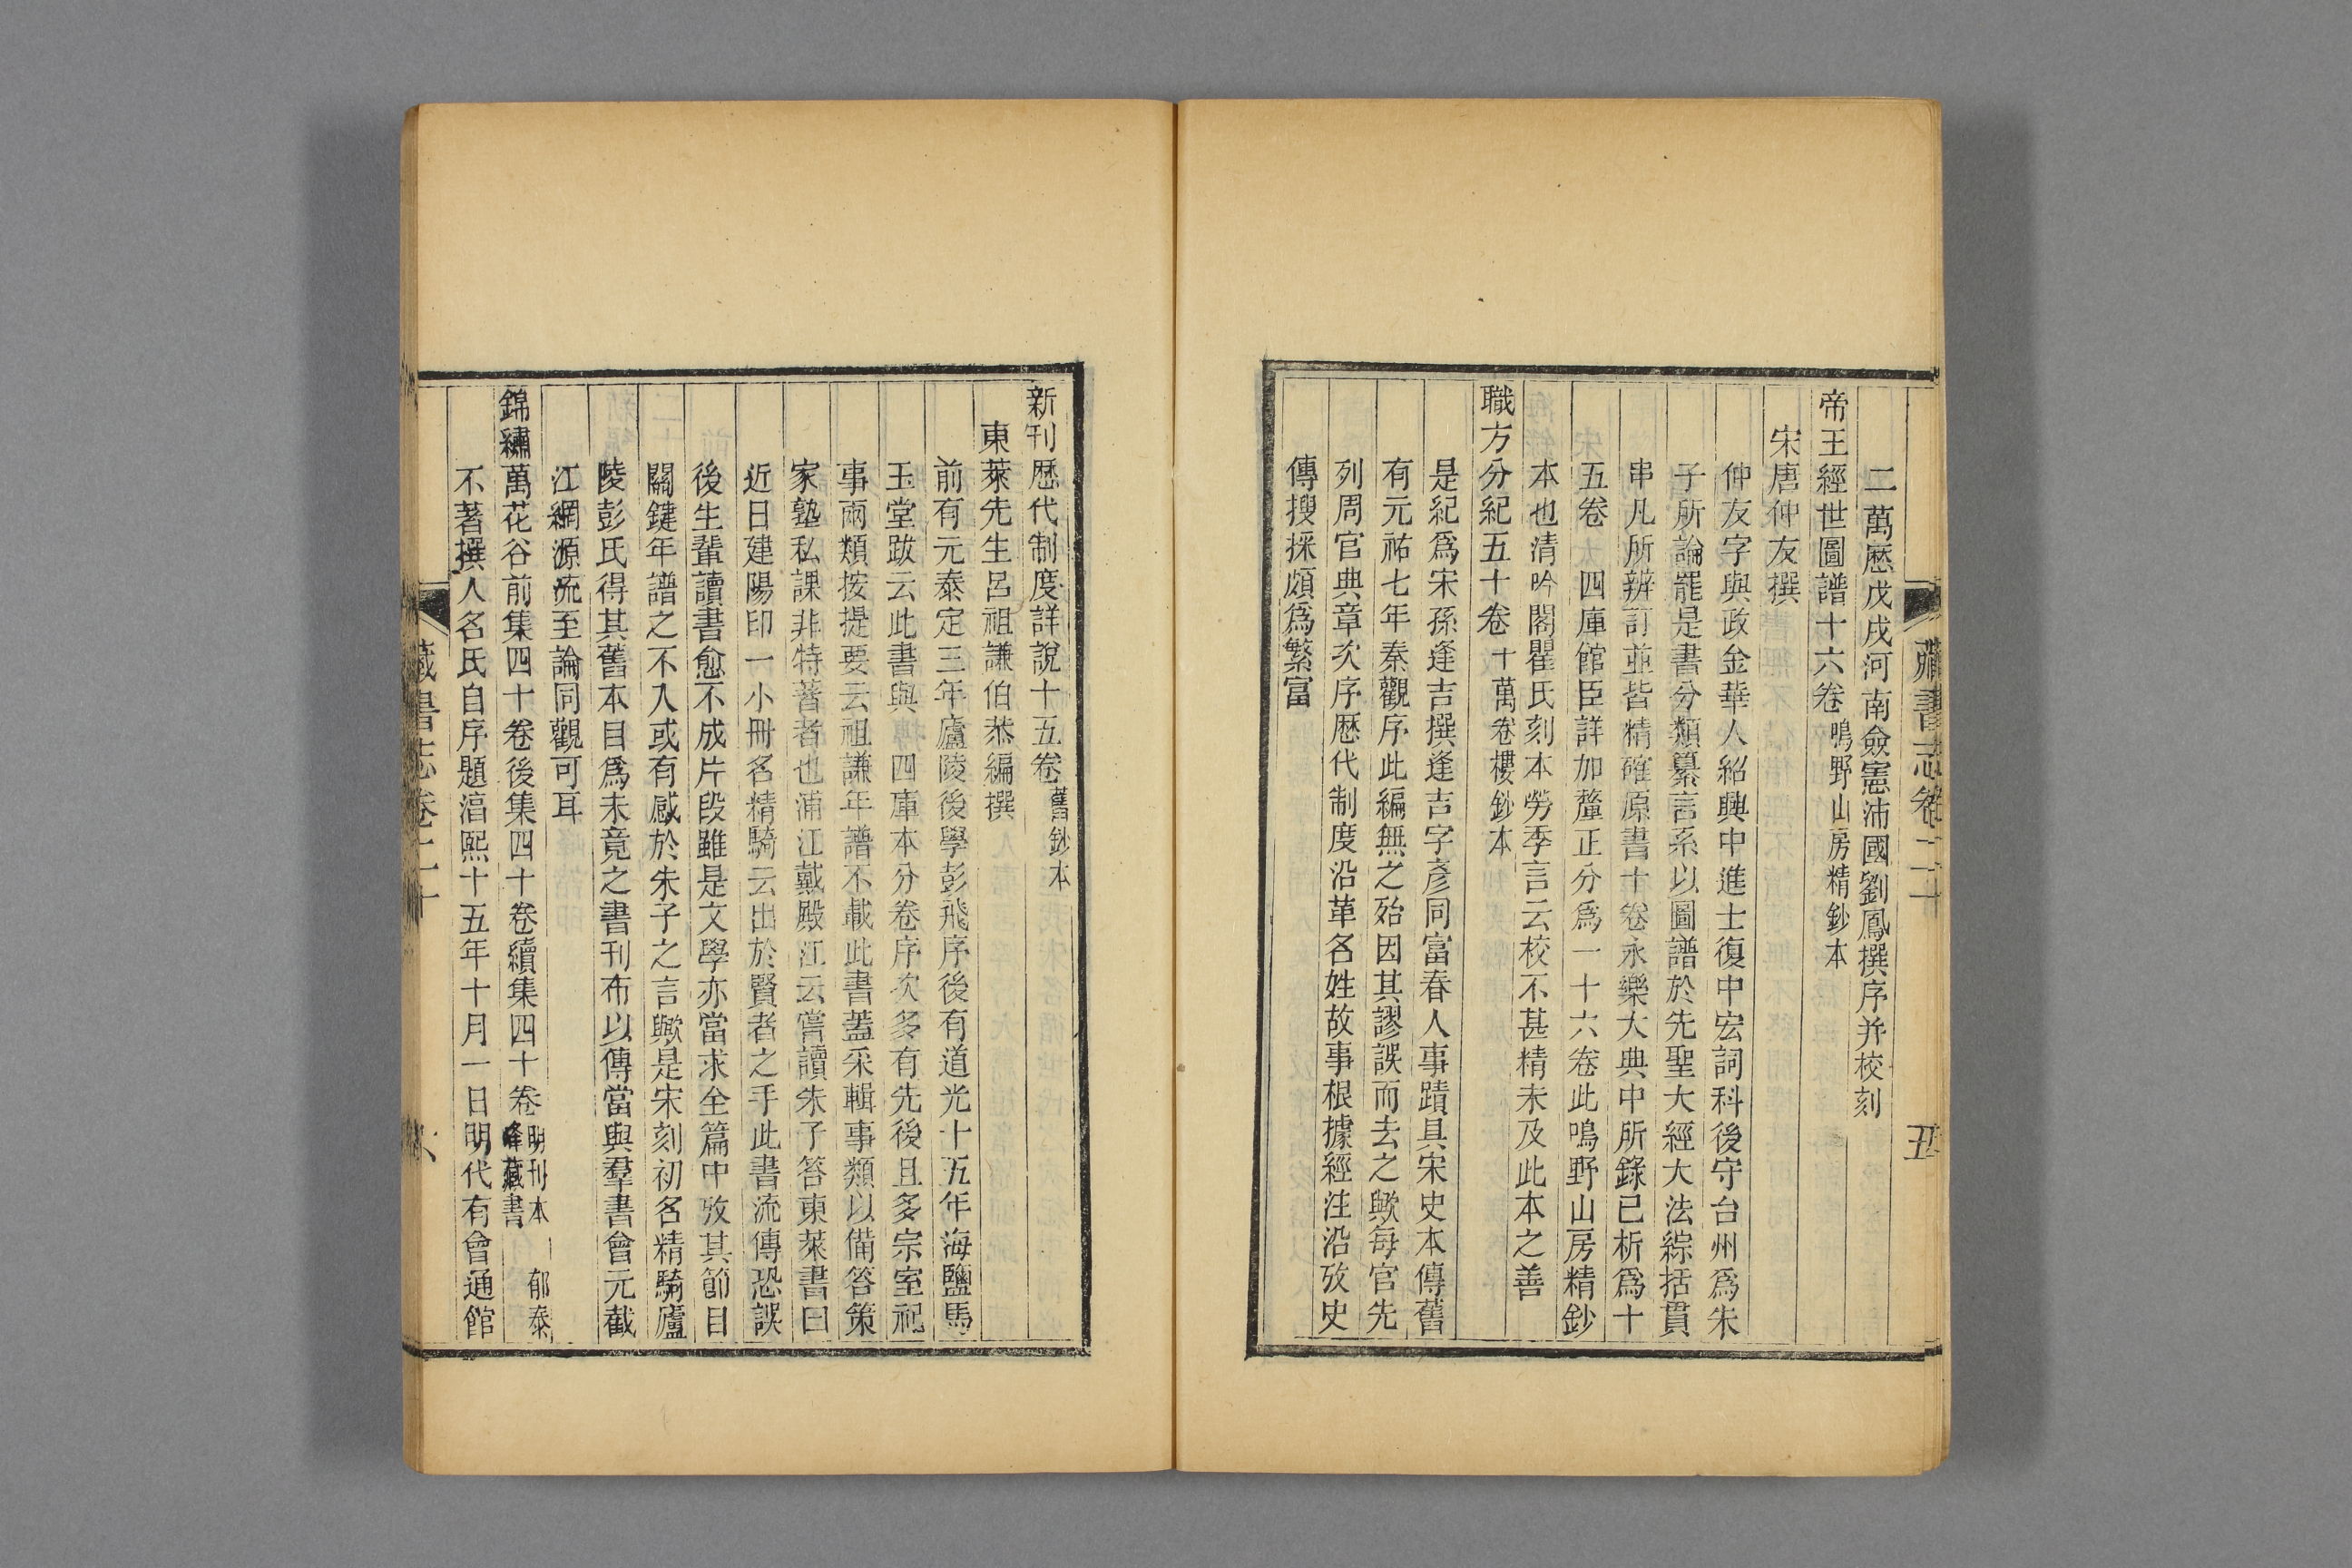 藏書志卷二十
五
二萬厯戊戌河南僉憲沛國劉鳳撰序并校刻
帝王經世圖譜十六卷鳴野山房精鈔本
宋唐仲友撰
仲友字與政金華人紹興中進士復中宏詞科後守台州爲朱
子所論罷是書分類纂言系以圖譜於先聖大經大法綜括貫
串凡所辨訂並皆精確原書十卷永樂大典中所錄已析爲十
五卷 四庫館臣詳加釐正分爲一十六卷此鳴野山房精鈔
本也清吟閣瞿氏刻本勞季言云校不甚精未及此本之善
職方分紀五十卷十萬卷樓鈔本
是紀爲宋孫逢吉撰逢吉字彥同富春人事蹟具宋史本傳舊
有元祐七年秦觀序此編無之殆因其謬誤而去之歟每官先
列周官典章次序歷代制度沿革名姓故事根據經注沿攷史
傳搜採頗爲繁富
新刊厯代制度詳說十五卷舊鈔本
東萊先生呂祖謙伯恭編撰
前有元泰定三年廬陵後學彭飛序後有道光十五年海鹽馬
玉堂跋云此書與 四庫本分卷序次多有先後且多宗室祀
事兩類按提要云祖謙年譜不載此書蓋采輯事類以備答策
家塾私課非特著者也浦江戴殿江云嘗讀朱子答東萊書曰
近日建陽印一小冊名精騎云出於賢者之手此書流傳恐誤
後生輩讀書愈不成片段雖是文學亦當求全篇中攷其節目
關鍵年譜之不入或有感於朱子之言歟是宋刻初名精騎廬
陵彭氏得其舊本目爲未竟之書刊布以傳當與羣書會元截
江網源流至論同觀可耳
錦繡萬花谷前集四十卷後集四十卷續集四十卷明刊本 郁泰
峰藏書
不著撰人名氏自序題淳熙十五年十月一日明代有會通館
藏書志卷二十
六